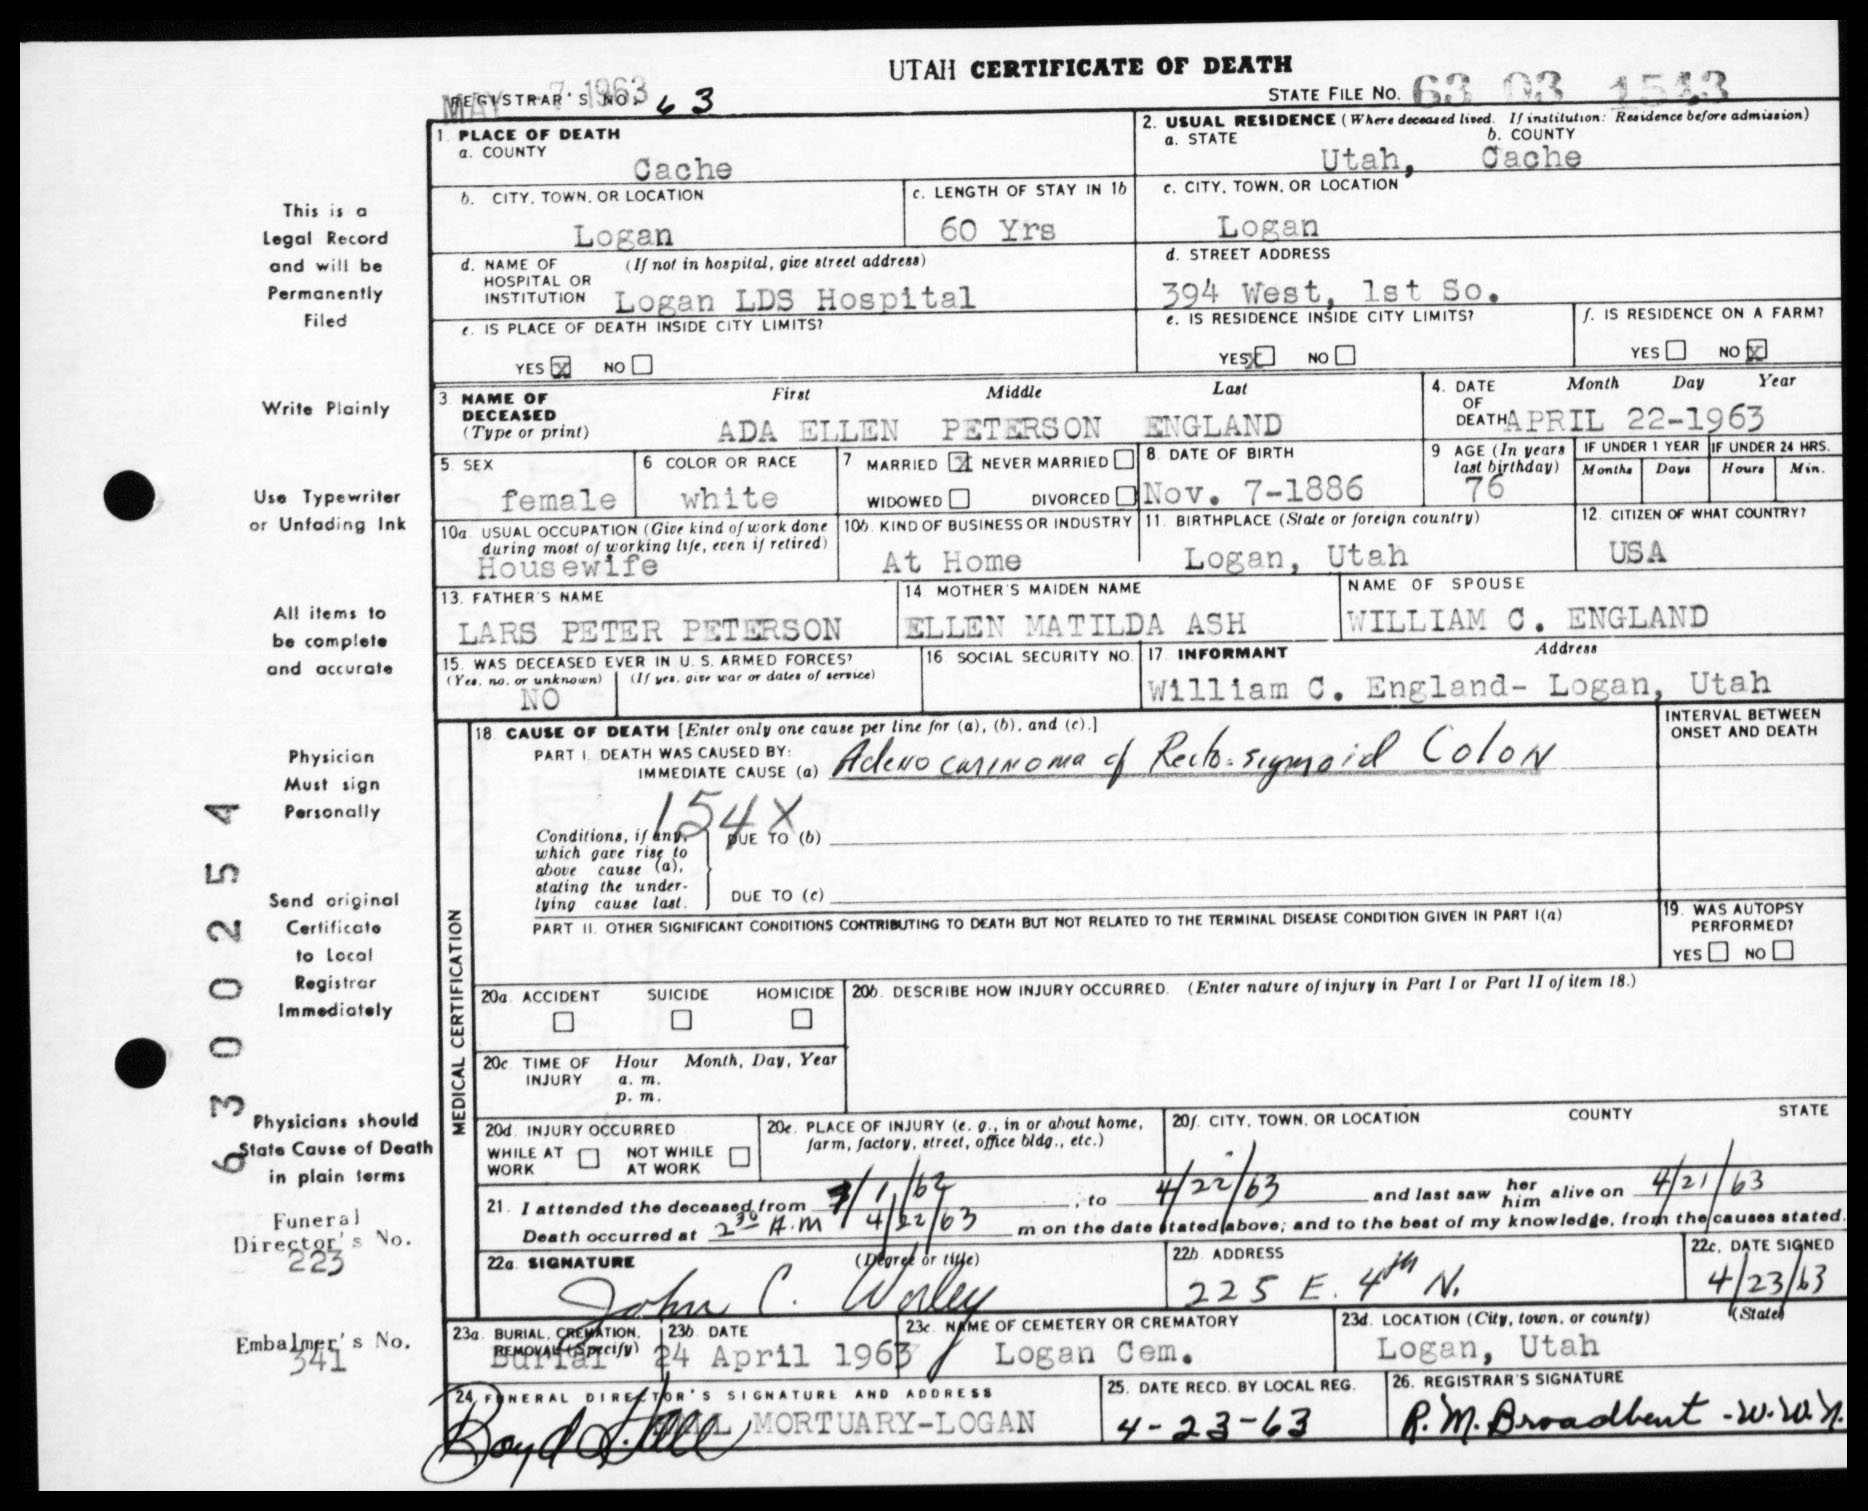 UTAH CERTIFICATE OF DEATH
MAY -7 1963
REGISTRAR'S NO. 63
STATE FILE NO. 63 03 1543
1. PLACE OF DEATH
a. COUNTY
Cache
2. USUAL RESIDENCE (Where deceased lived. If institution: Residence before admission)
a. STATE b. COUNTY
Utah, Cache
b. CITY, TOWN, OR LOCATION
Logan
c. LENGTH OF STAY IN 1b
60 Yrs
c. CITY, TOWN, OR LOCATION
Logan
d. NAME OF HOSPITAL OR INSTITUTION (If not in hospital, give street address)
Logan LDS Hospital
d. STREET ADDRESS
394 West, 1st So.
e. IS PLACE OF DEATH INSIDE CITY LIMITS?
YES X NO
e. IS RESIDENCE INSIDE CITY LIMITS?
YES X NO
f. IS RESIDENCE ON A FARM?
YES NO X
3. NAME OF DECEASED (Type or print)
First Middle Last
ADA ELLEN PETERSON ENGLAND
4. DATE OF DEATH Month Day Year
APRIL 22-1963
5. SEX
female
6 COLOR OR RACE
white
7 MARRIED X NEVER MARRIED
WIDOWED DIVORCED
8. DATE OF BIRTH
Nov. 7-1886
9 AGE (In years last birthday)
76
IF UNDER 1 YEAR IF UNDER 24 HRS.
Months Days Hours Min.
10a. USUAL OCCUPATION (Give kind of work done during most of working life, even if retired)
Housewife
10b. KIND OF BUSINESS OR INDUSTRY
At Home
11. BIRTHPLACE (State or foreign country)
Logan, Utah
12. CITIZEN OF WHAT COUNTRY?
USA
13. FATHER'S NAME
LARS PETER PETERSON
14. MOTHER'S MAIDEN NAME
ELLEN MATILDA ASH
NAME OF SPOUSE
WILLIAM C. ENGLAND
15. WAS DECEASED EVER IN U. S. ARMED FORCES?
(Yes, no, or unknown) (If yes, give war or dates of service)
NO
16 SOCIAL SECURITY NO.
17. INFORMANT Address
William C. England- Logan, Utah
MEDICAL CERTIFICATION
18. CAUSE OF DEATH [Enter only one cause per line for (a), (b), and (c).]
INTERVAL BETWEEN ONSET AND DEATH
PART I. DEATH WAS CAUSED BY:
IMMEDIATE CAUSE (a) Adenocarinoma of Recto-sigmoid Colon
154X
Conditions, if any, which gave rise to above cause (a), stating the underlying cause last.
DUE TO (b)
DUE TO (c)
PART II. OTHER SIGNIFICANT CONDITIONS CONTRIBUTING TO DEATH BUT NOT RELATED TO THE TERMINAL DISEASE CONDITION GIVEN IN PART I(a)
19. WAS AUTOPSY PERFORMED?
YES NO
20a. ACCIDENT SUICIDE HOMICIDE
20b. DESCRIBE HOW INJURY OCCURRED. (Enter nature of injury in Part I or Part II of item 18.)
20c. TIME OF INJURY Hour Month, Day, Year
a. m.
p. m.
20d. INJURY OCCURRED
WHILE AT WORK NOT WHILE AT WORK
20e. PLACE OF INJURY (e. g., in or about home, farm, factory, street, office bldg., etc.)
20f. CITY, TOWN, OR LOCATION COUNTY STATE
21. I attended the deceased from /1/62, to 4/22/63 and last saw her him alive on 4/21/63
Death occurred at 2 30 A.M 4/22/63 m on the date stated above; and to the best of my knowledge, from the causes stated.
22a. SIGNATURE (Degree or title)
John C. Worley
22b. ADDRESS
225 E. 4th N.
22c. DATE SIGNED
4/23/63
23a. BURIAL, CREMATION, REMOVAL (Specify)
Burial
23b. DATE
24 April 1963
23c. NAME OF CEMETERY OR CREMATORY
Logan Cem.
23d. LOCATION (City, town, or county) (State)
Logan, Utah
24. FUNERAL DIRECTOR'S SIGNATURE AND ADDRESS
Boyd Hall
HALL MORTUARY-LOGAN
25. DATE RECD. BY LOCAL REG.
4-23-63
26. REGISTRAR'S SIGNATURE
R.M. Broadbent -W.W.N.
This is a
Legal Record
and will be
Permanently
Filed
Write Plainly
Use Typewriter
or Unfading Ink
All items to
be complete
and accurate
Physician
Must sign
Personally
Send original
Certificate
to Local
Registrar
Immediately
Physicians should
State Cause of Death
in plain terms
Funeral
Director's No.
223
Embalmer's No.
341
6 3 0 0 2 5 4